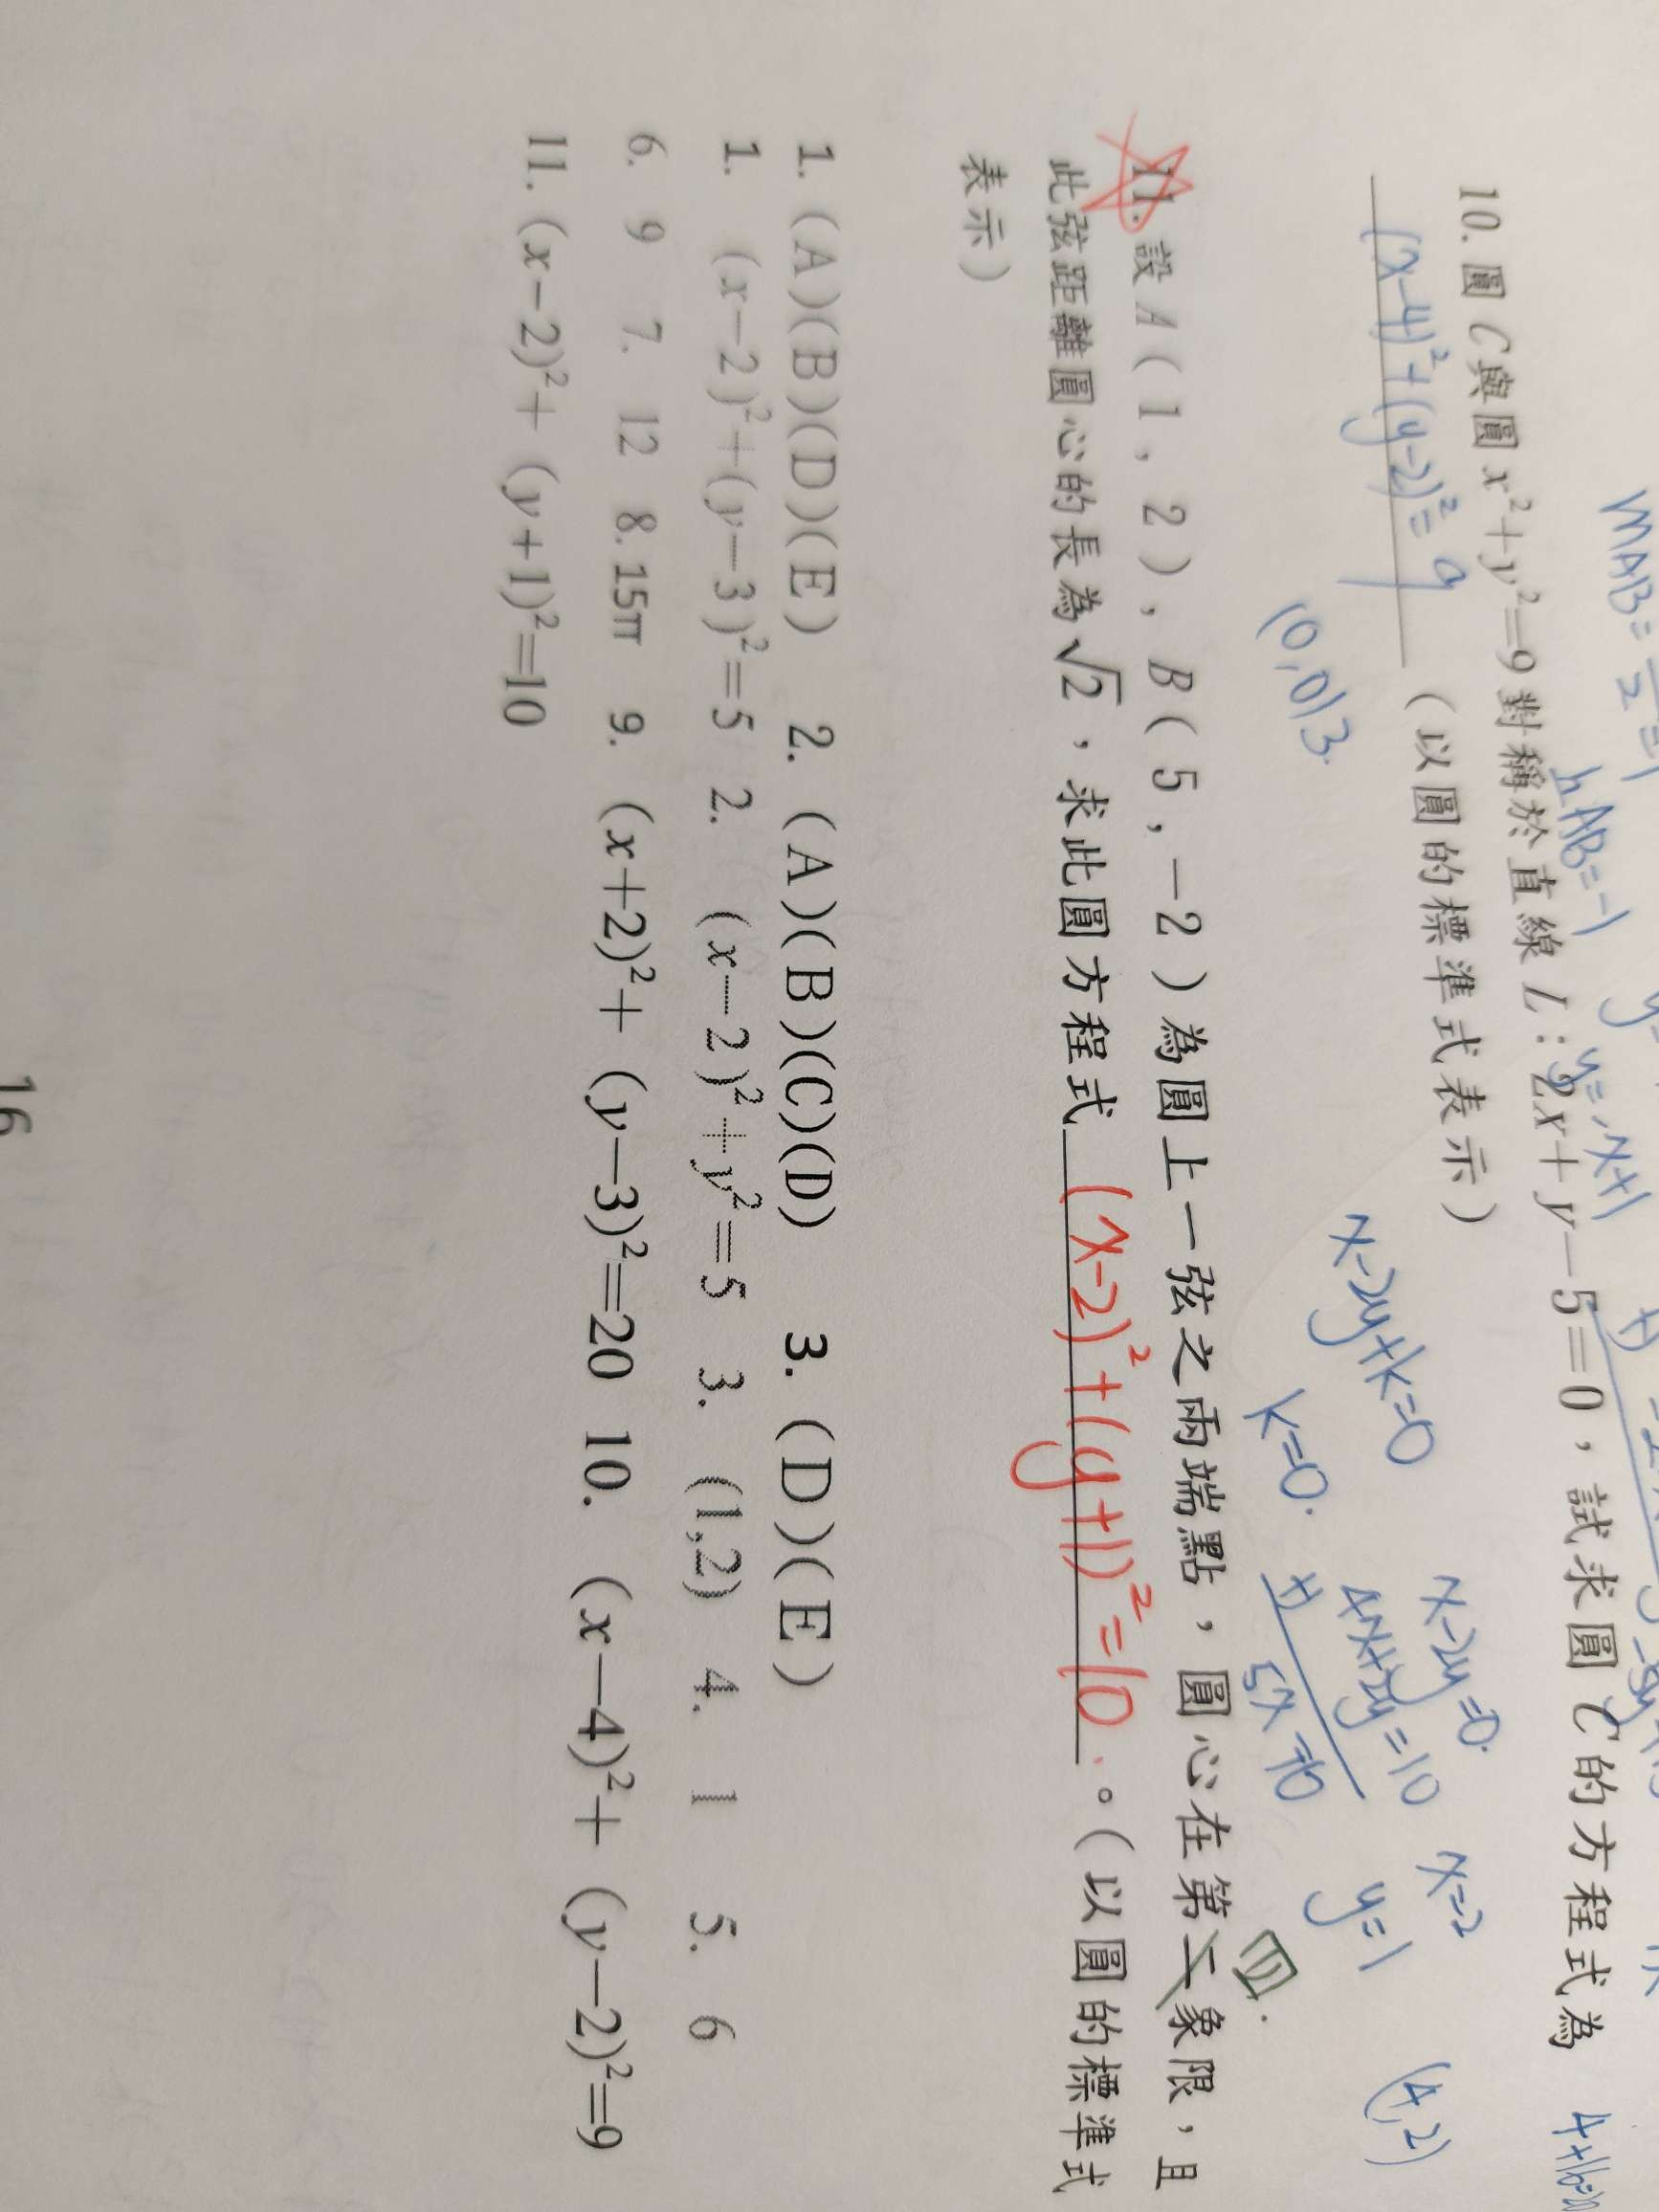 mAB=
2
=1
hAB=-1
y=x+1
10. 圓 C 與圓 x²+y²=9 對稱於直線 L:2x+y-5=0，試求圓 C 的方程式為
(x-4)²+(y-2)²=9 （以圓的標準式表示）
(0,0) 3.
x-2y+k=0
k=0.
x-2y=0.
4x+2y=10
+)
5x=10
x=2
y=1
(4,2)
四.
11. 設 A（1，2），B（5，-2）為圓上一弦之兩端點，圓心在第二象限，且
此弦距離圓心的長為√2，求此圓方程式 (x-2)²+(y+1)²=10. 。（以圓的標準式
表示）
1. (A)(B)(D)(E) 2. (A)(B)(C)(D) 3. (D)(E)
1. (x-2)²+(y-3)²=5 2. (x-2)²+y²=5 3. (1,2) 4. 1 5. 6
6. 9 7. 12 8. 15π 9. (x+2)²+ (y-3)²=20 10. (x-4)²+ (y-2)²=9
11. (x-2)²+ (y+1)²=10
16